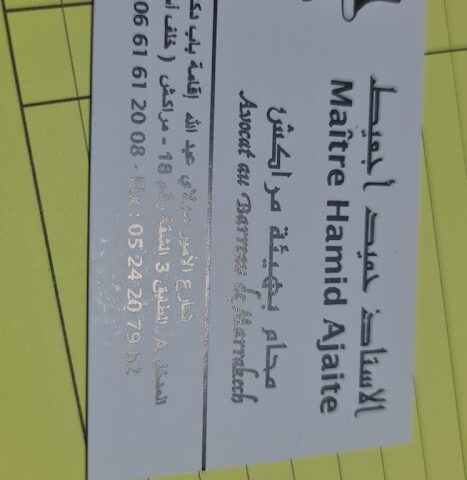 الاستاذ حميد اجعيط
Maître Hamid Ajaite
محام بهيئة مراكش
Avocat au Barreau de Marrakech
شارع الأمير مولاي عبد الله إقامة باب دك
المدخل A الطابق 3 الشقة رقم 18 - مراكش ( خلف
06 61 61 20 08 - Fix : 05 24 20 79 52